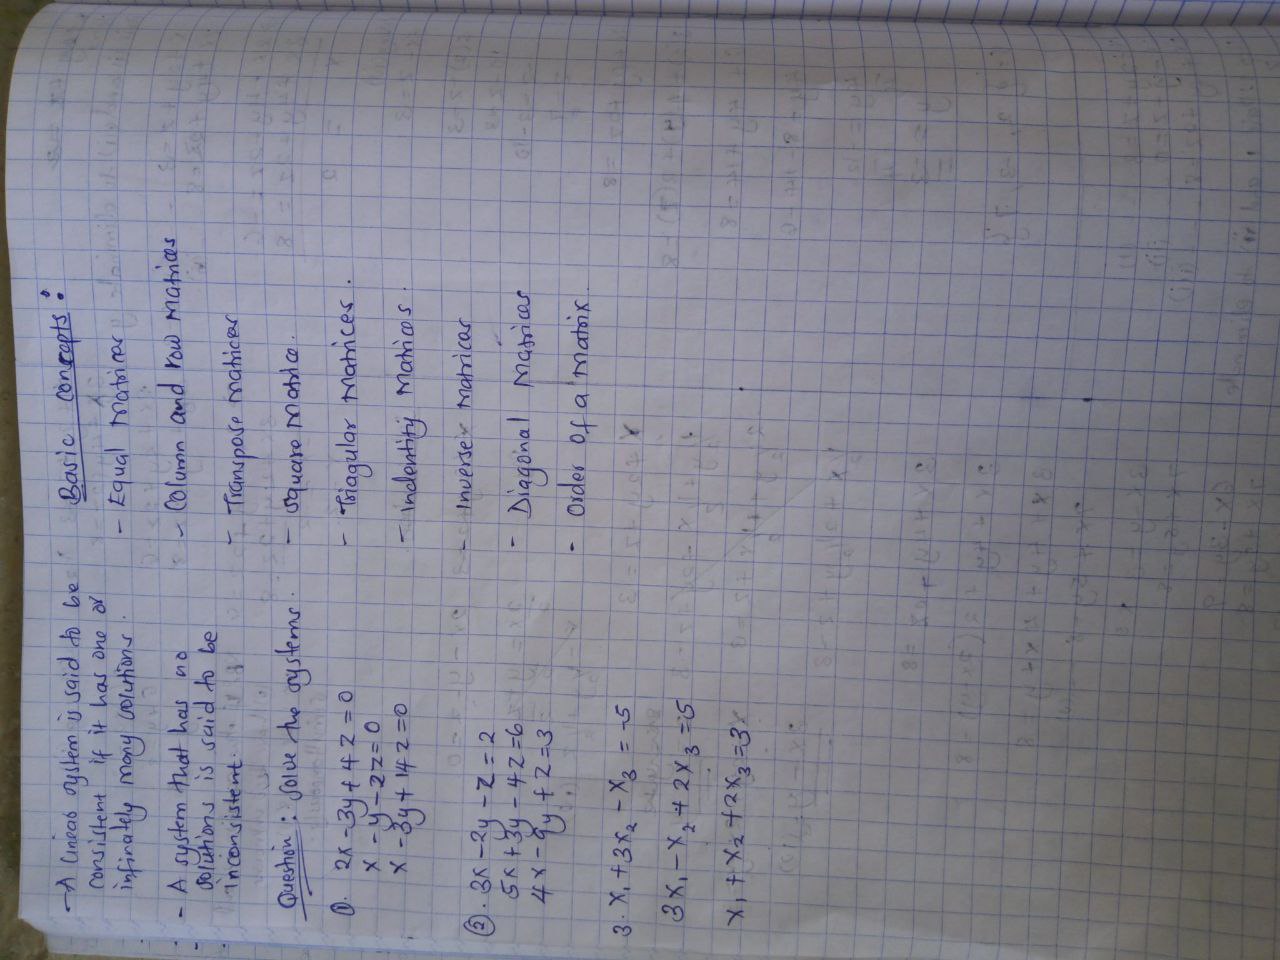 - A linear system is said to be
consistent if it has one or
infinately many solutions.
- A system that has no
solutions is said to be
inconsistent.
Question: Solve the systems.
1. 2x - 3y + 4z = 0
x - y - 2z = 0
x - 3y + 14z = 0
2. 3x - 2y - z = 2
5x + 3y - 4z = 6
4x - 9y + z = 3
3. x₁ + 3x₂ - x₃ = -5
3x₁ - x₂ + 2x₃ = 5
x₁ + x₂ + 2x₃ = 3
Basic concepts:
- Equal Matrices
- Column and row Matrices
- Transpose Matrices
- Square Matrice.
- Triagular Matrices.
- Indentity Matrices.
- Inverse Matrices
- Diagonal Matrices
- Order of a Matrix.